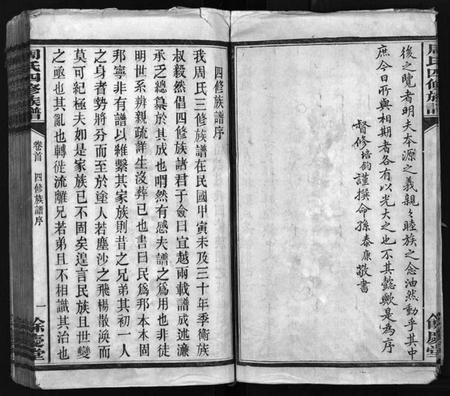 後之覽者明夫本源之義親親睦族之念油然動乎其中
庶今日所與相期者各有以光大之也不其懿歟是為序
督修培鈞謹撰命孫泰康敬書
周氏四修族譜
餘慶堂
四修族譜序
我周氏三修族譜在民國甲寅未及三十年季衛族
叔毅然倡四修族諸君子僉曰宜越兩載譜成述濂
承乏總纂於其成也喟然有感夫譜之為用也非徒
明世系辨親疏詳生沒葬已也書曰民為邦本本固
邦寧非有譜以維繫其家族則昔之兄弟其初一人
之身者勢將分而至於塗人若塵沙之飛楊散渙而
莫可紀極夫如是家族已不固矣遑言民族且世變
之亟也其亂也轉徙流離兄若弟且不相識其治也
周氏四修族譜
卷首
四修族譜序
一
餘慶堂